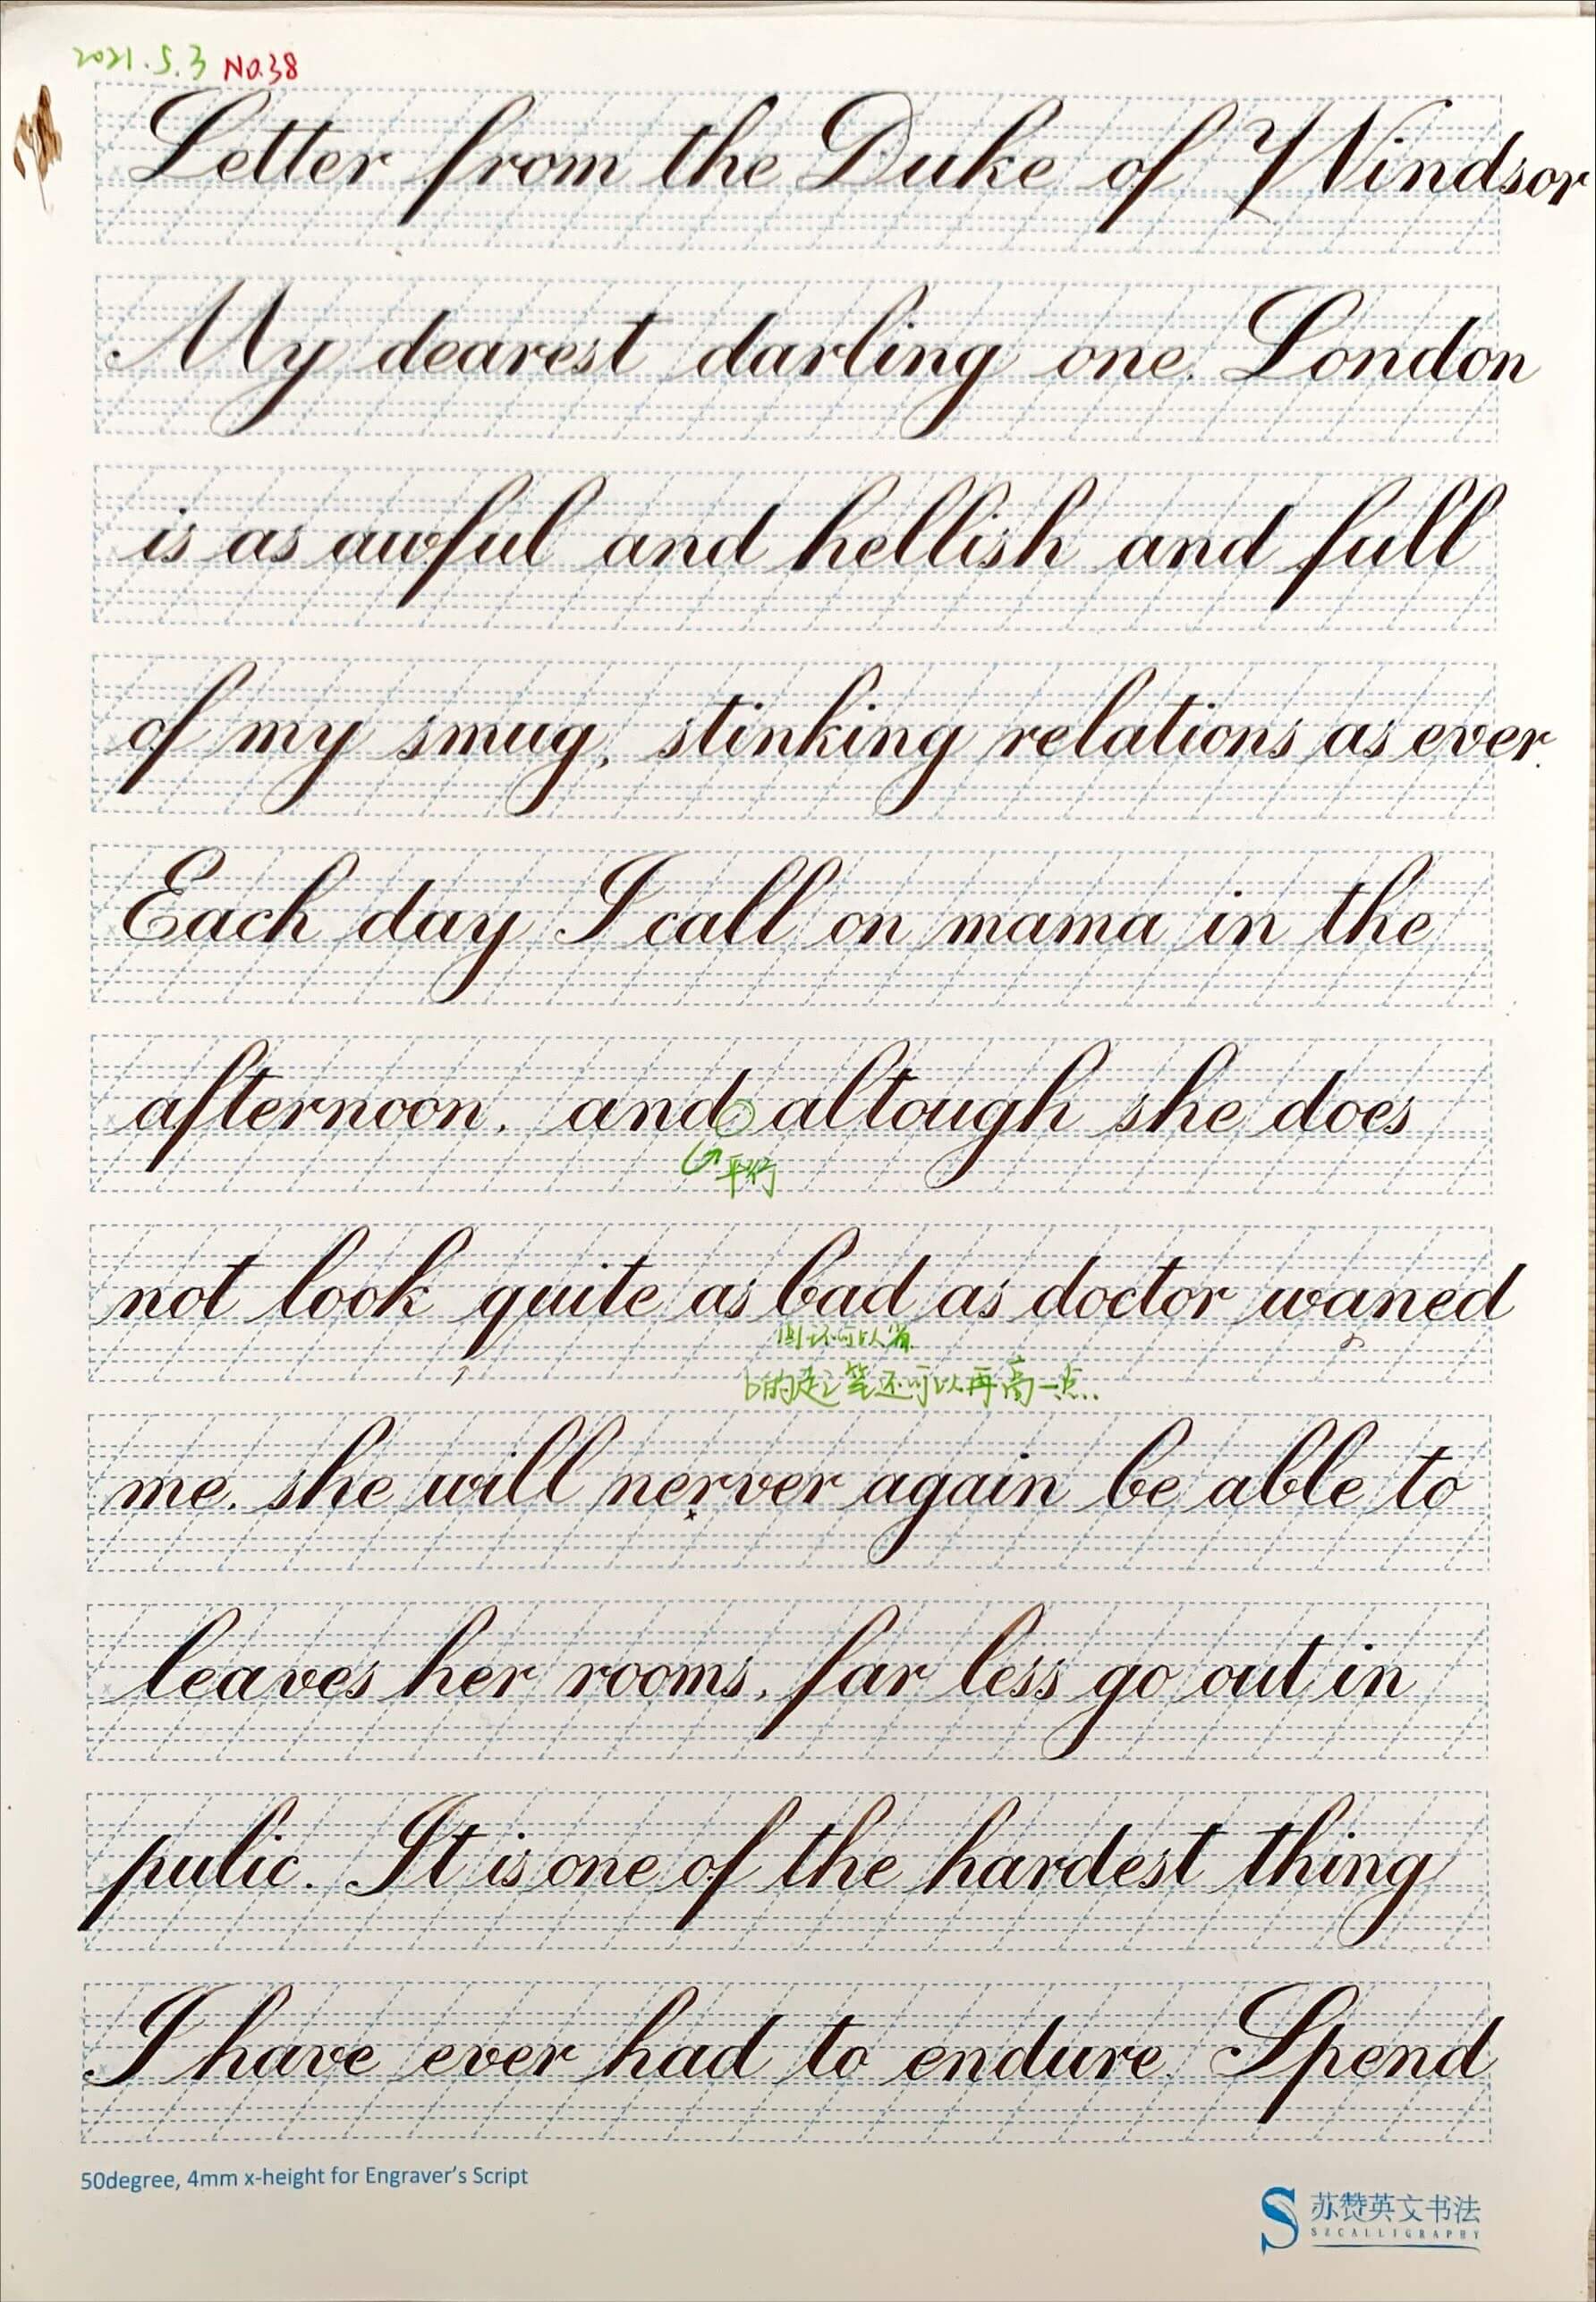 2021.5.3 No.38
Letter from the Duke of Windsor
My dearest darling one. London
is as awful and hellish and full
of my smug, stinking relations as ever.
Each day I call on mama in the
afternoon, and altough she does
平行
not look quite as bad as doctor waned
还可以
b的起笔还可以再高一点..
me. she will nerver again be able to
leaves her rooms, far less go out in
pulic. It is one of the hardest thing
I have ever had to endure. Spend
50degree, 4mm x-height for Engraver's Script
S 苏赞英文书法
SZCALLIGRAPHY